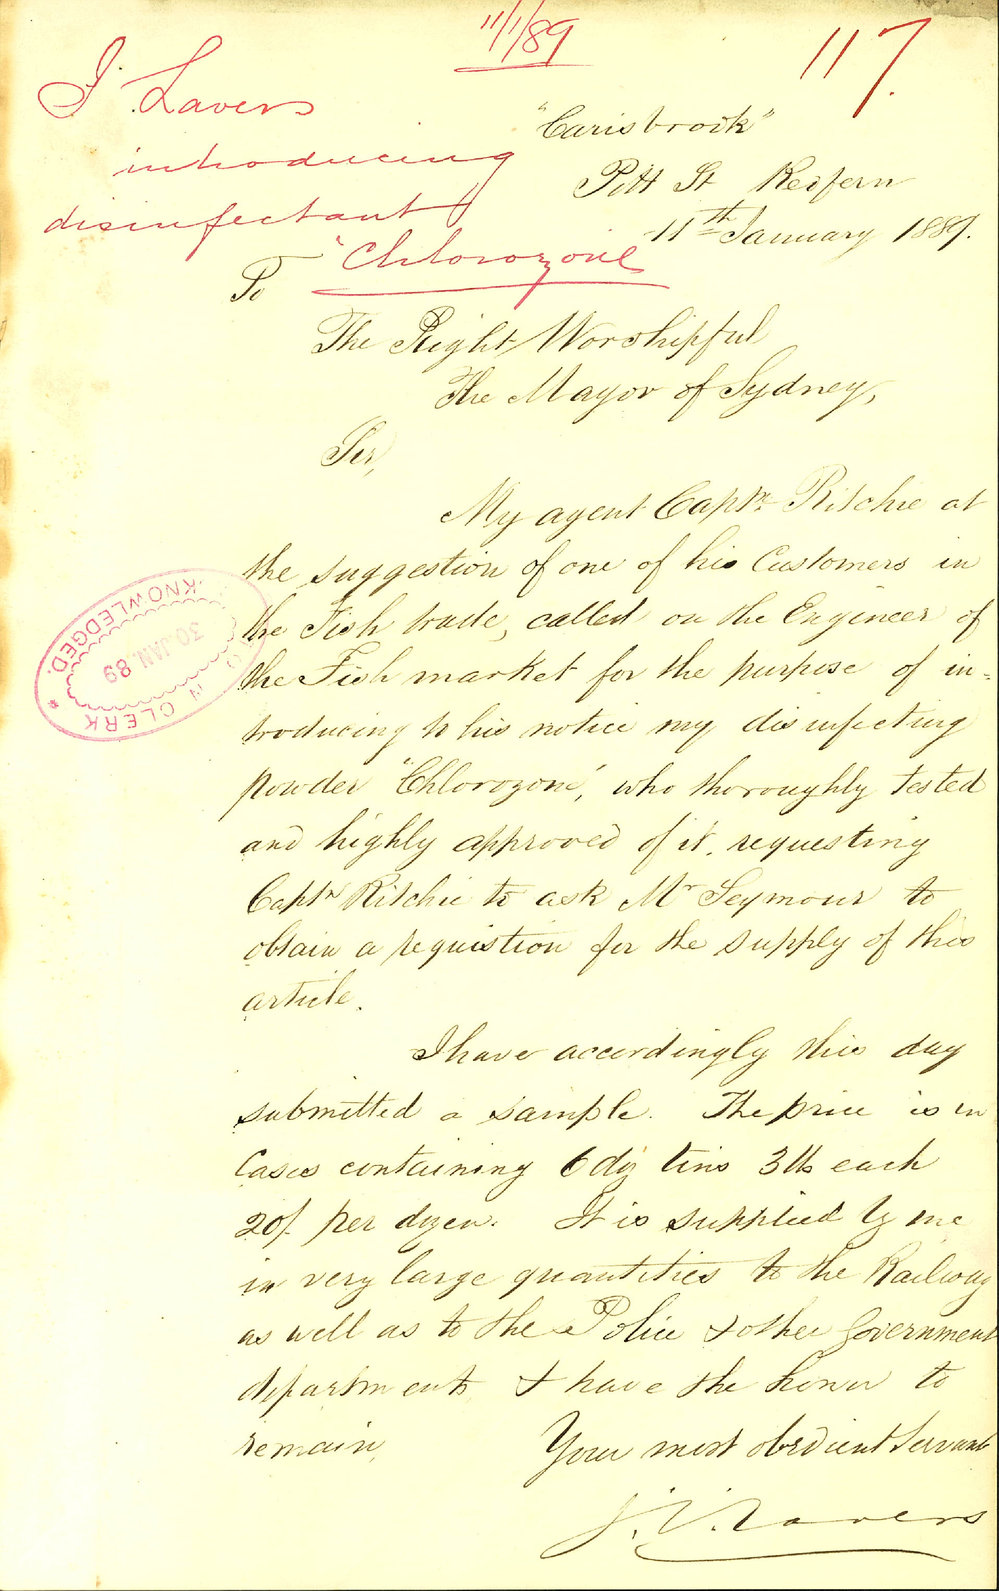 11/1/89
117.
J. Lavers
introducing
disinfectant
"Chlorozone
"Carisbrook"
Pitt St Redfern
11th January 1889.
To
The Right Worshipful
The Mayor of Sydney,
Sir,
My agent Captn Ritchie at
the suggestion of one of his Customers in
the Fish trade, called on the Engineer of
the Fish market for the purpose of in-
troducing to his notice my disinfecting
powder "Chlorozone", who thoroughly tested
and highly approved of it, requesting
Captn Ritchie to ask Mr Seymour to
obtain a requistion for the supply of this
article.
I have accordingly this day
submitted a sample. The price is in
Cases containing 6 doz tins 3 lb each
20/. per dozen. It is supplied by me
in very large quantities to the Railway
as well as to the Police & other Government
departments & have the honor to
remain,
Your most obedient Servant
J. V. Lavers
CLERK
KNOWLEDGED.
30 JAN. 89